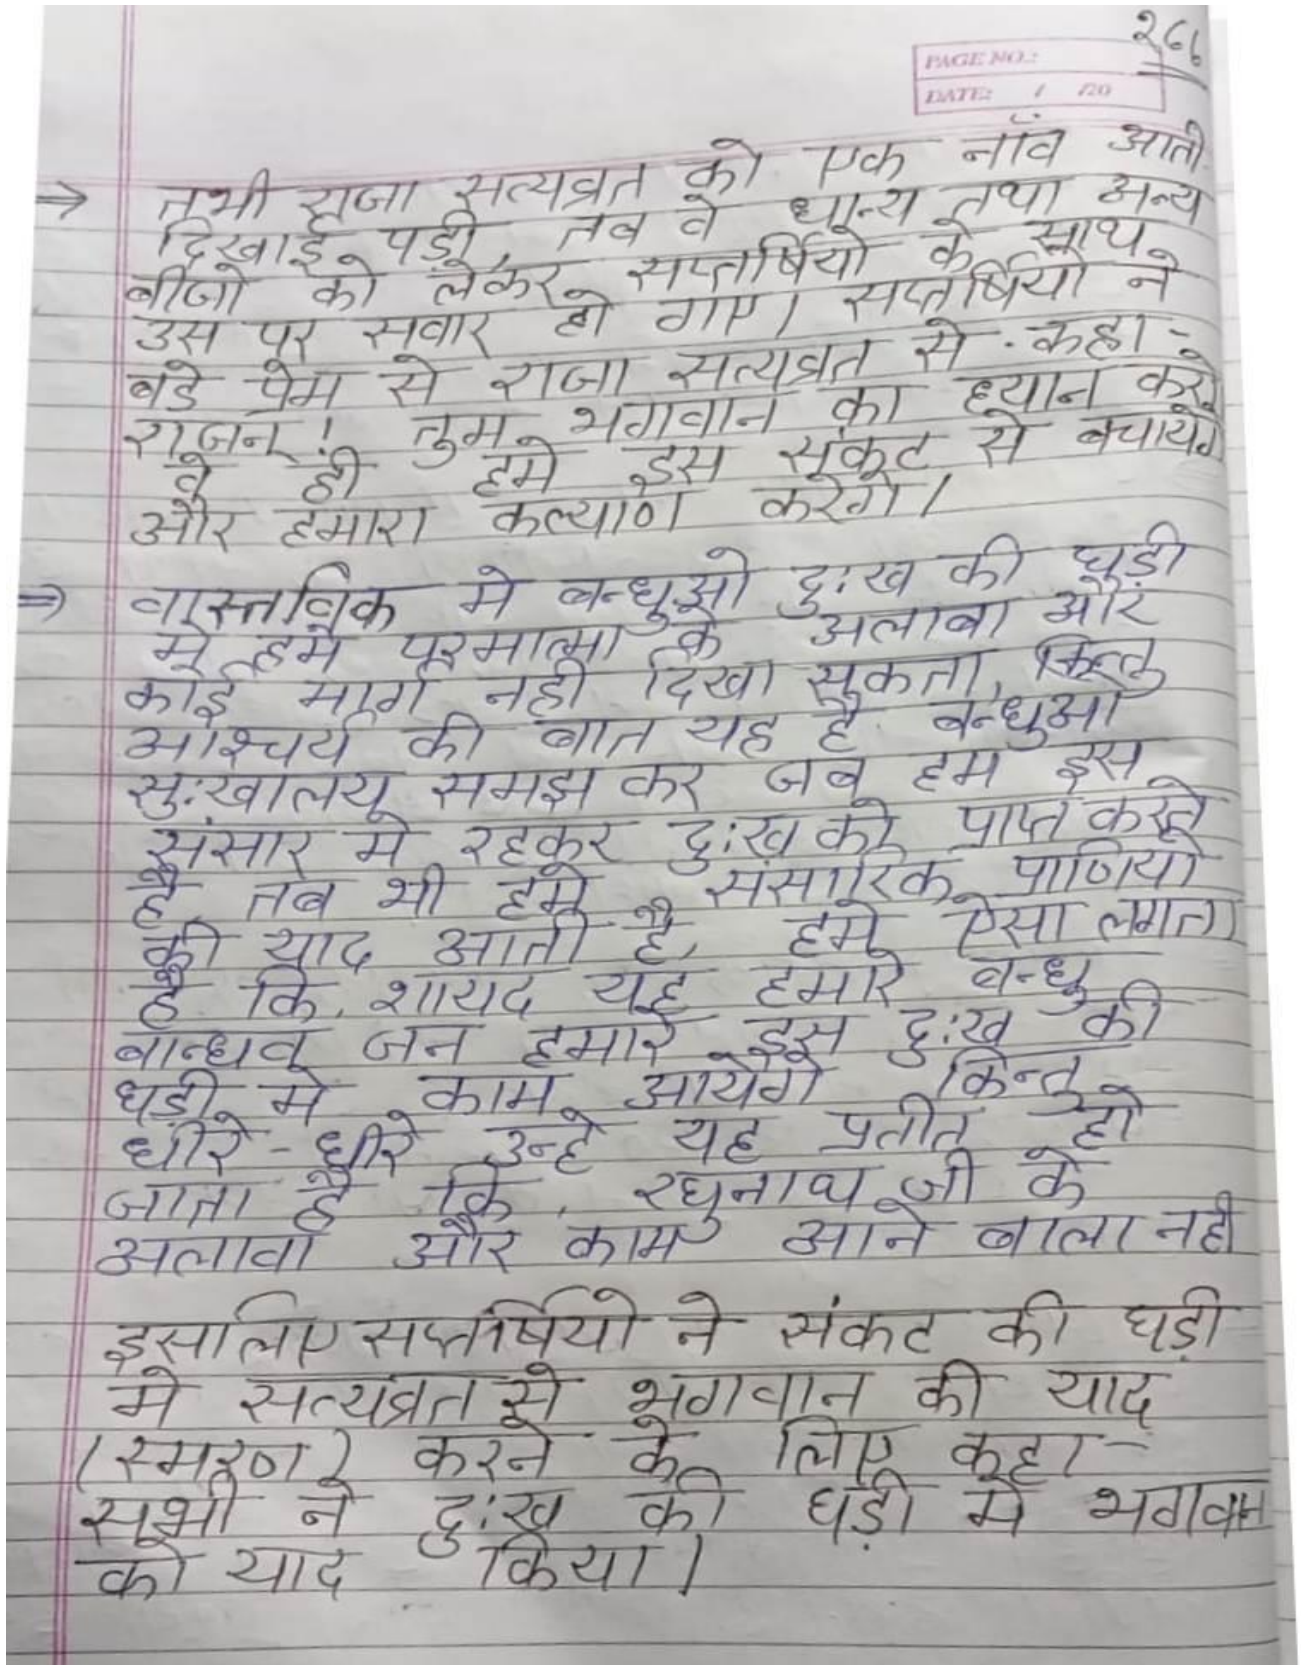 २६६
PAGE NO.:
DATE: / /20
→ तभी राजा सत्यव्रत को एक नॉव आती
दिखाई पड़ी, तब वे धान्य तथा अन्य
बीजो को लेकर सप्तर्षियो के साथ
उस पर सवार हो गए। सप्तर्षियो ने
बडे प्रेम से राजा सत्यव्रत से कहा -
राजन्! तुम भगवान का ध्यान करो
वे ही हमे इस संकट से बचायेगे
और हमारा कल्याण करेगे।
⇒ वास्तविक मे बन्धुओ दुःख की घड़ी
मे हमे परमात्मा के अलाबा और
कोई मार्ग नही दिखा सकता, किन्तु
आश्चर्य की बात यह है बन्धुओ
सुःखालय समझ कर जब हम इस
संसार मे रहकर दुःख को प्राप्त करते
है, तब भी हमे संसारिक प्राणियो
की याद आती है, हमे ऐसा लगता
है कि, शायद यह हमारे बन्धु
बान्धव जन हमारे इस दुःख की
घड़ी मे काम आयेगे किन्तु
धीरे-धीरे उन्हे यह प्रतीत हो
जाता है कि, रघुनाथ जी के
अलावा और काम आने बाला नही
इसलिए सप्तर्षियो ने संकट की घड़ी
मे सत्यव्रत से भगवान की याद
(स्मरण) करने के लिए कहा-
सभी ने दुःख की घड़ी मे भगवान
को याद किया।